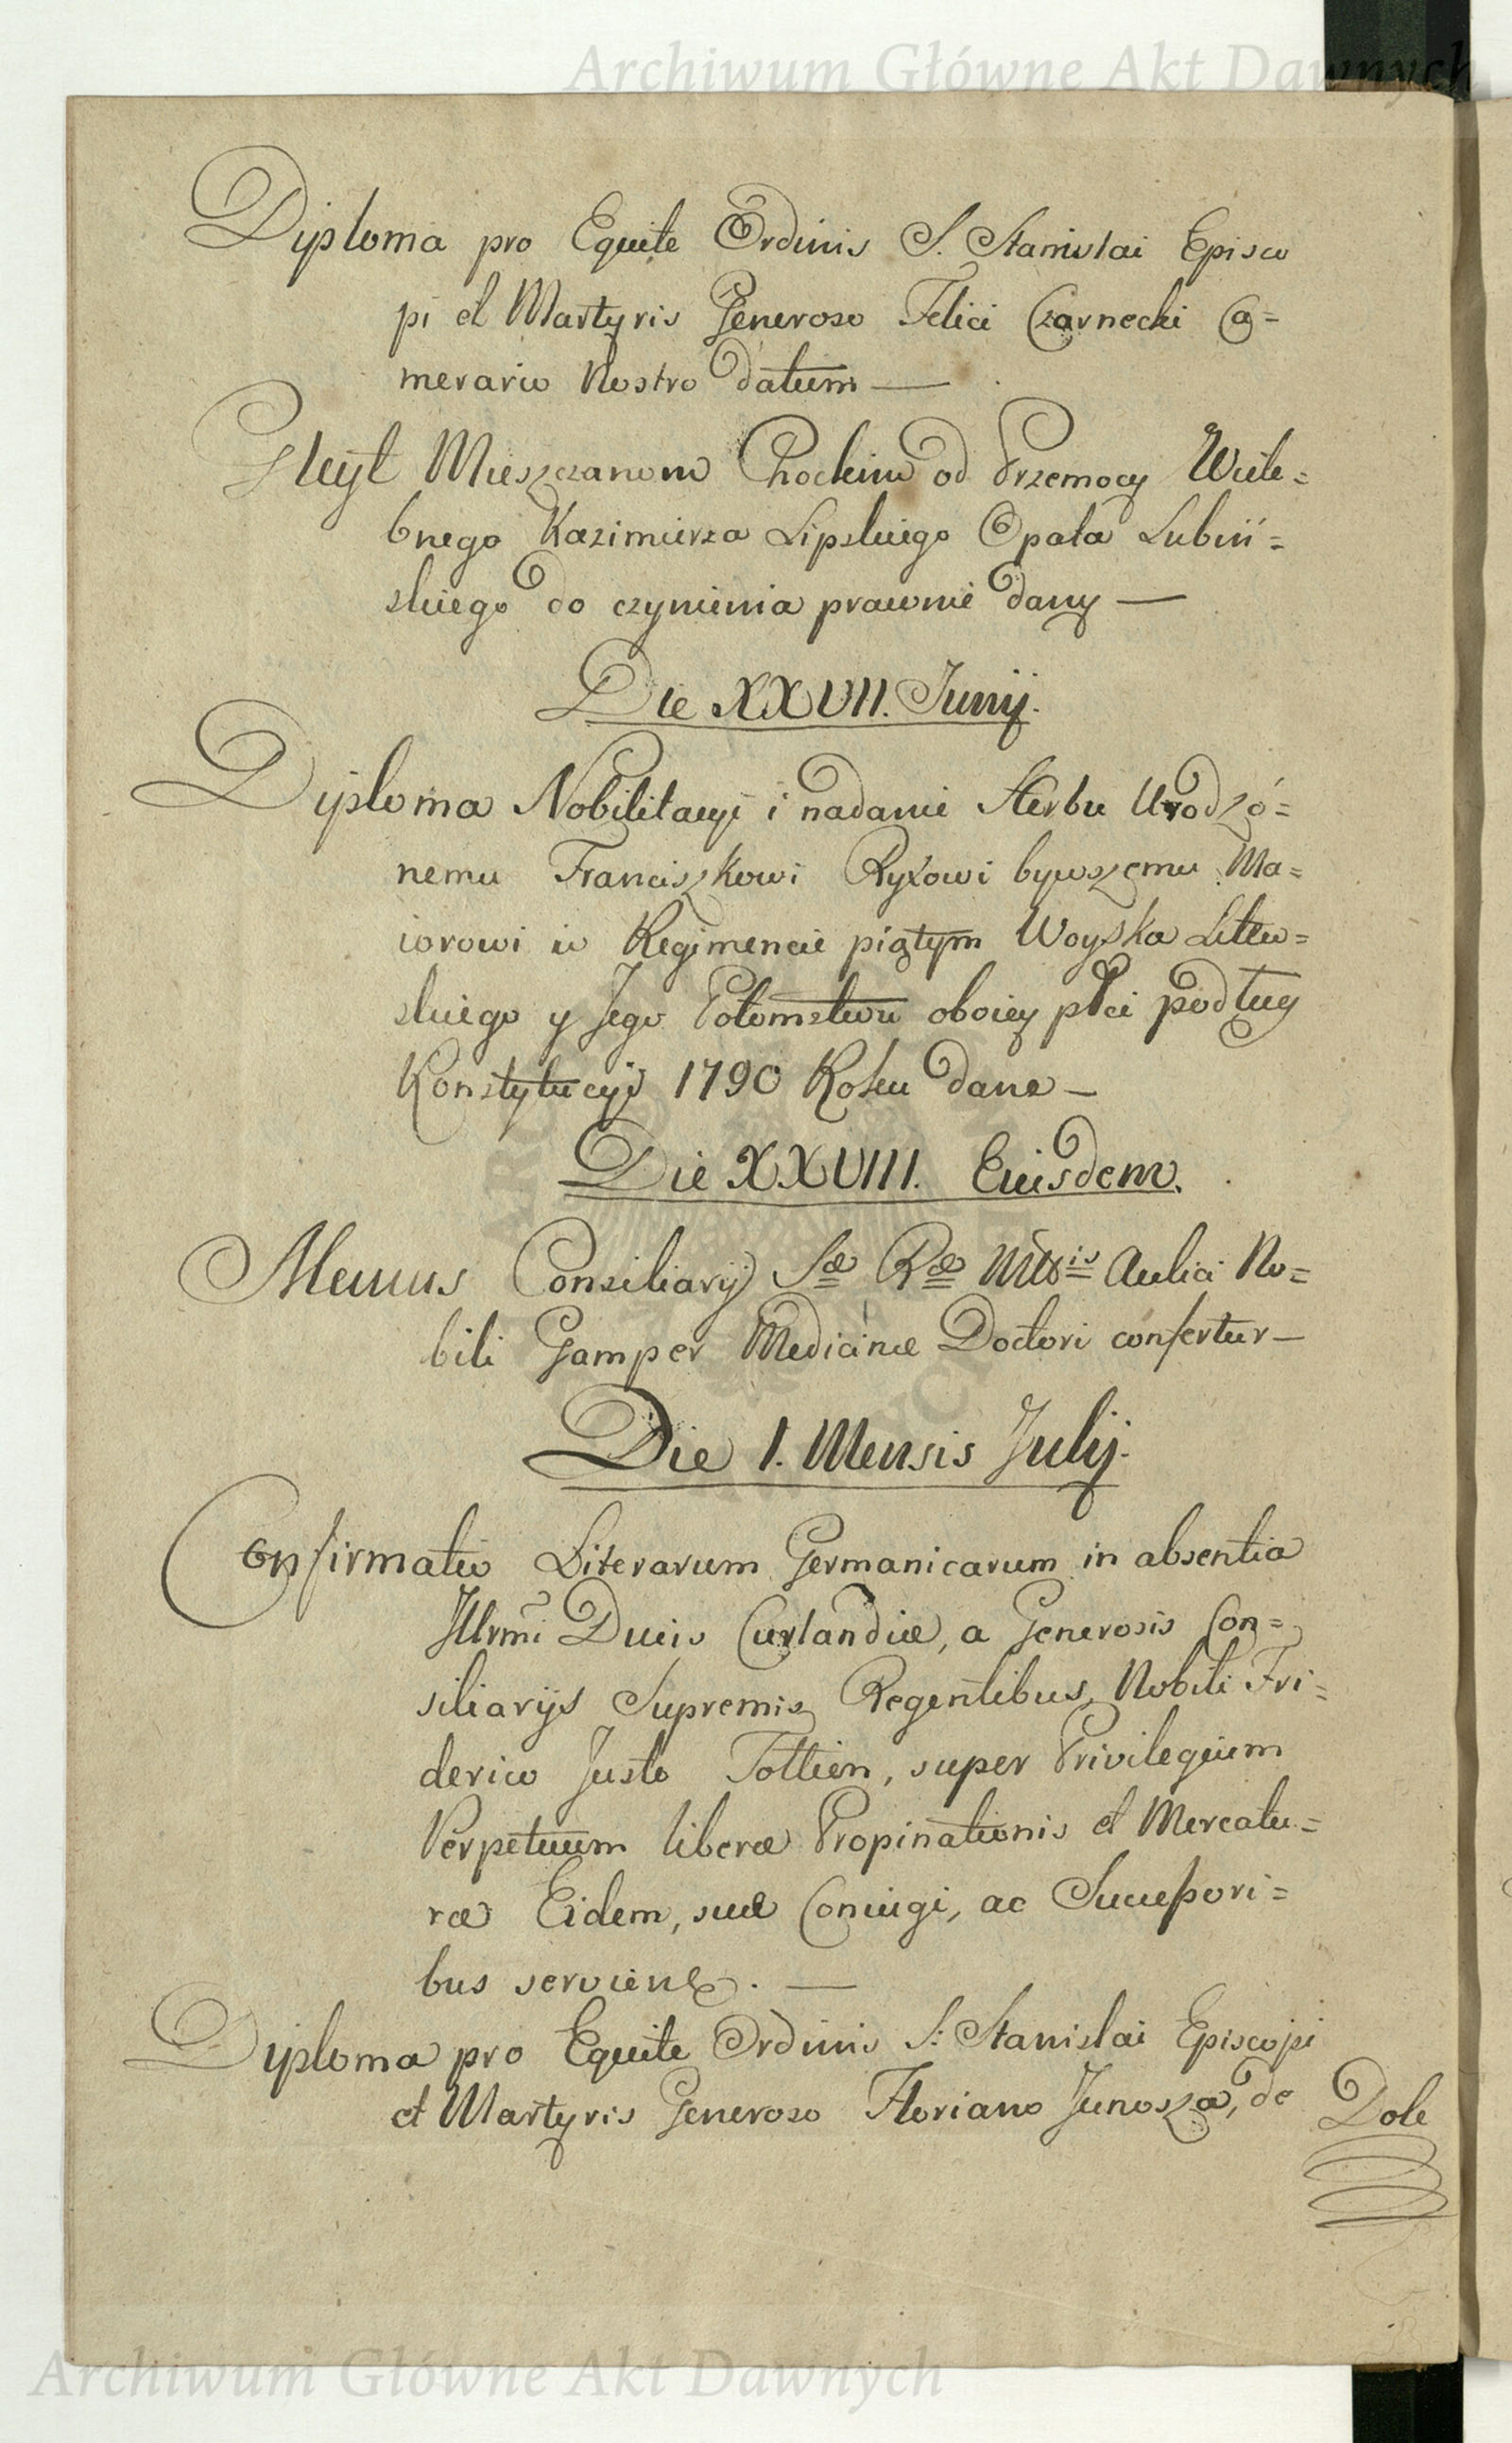 Archiwum Główne Akt Dawnych
Diploma pro Equite Ordinis S. Stanislai Episco
pi et Martyris Generoso Felici Czarnecki Ca=
merario Nostro datum —
Gleyt Mieszczanom Chockim od Przemocy Wiele=
bnego Kazimierza Lipskiego Opata Lubiń=
skiego do czynienia prawnie dany —
Die XXVII. Junij.
Diploma Nobilitacyi i nadanie Herbu Urodzo=
nemu Franciszkowi Ryxowi bywszemu Ma=
iorowi w Regimencie piątym Woyska Litew=
skiego y Jego Potomstwu oboiey płci podług
Konstytucyi 1790 Roku dane —
Die XXVIII. Eiusdem.
Munus Consiliarij Sæ Ræ Mttis Aulici No=
bili Gamper Medicinæ Doctori confertur —
Die 1. Mensis Julij.
Confirmatio Literarum Germanicarum in absentia
Illrmi Ducis Curlandiæ, a Generosis Con=
siliarijs Supremis Regentibus, Nobili Fri=
derico Justo Tottien, super Privilegium
Perpetuum liberæ Propinationis et Mercatu=
ræ Eidem, suæ Coniugi, ac Successori=
bus serviens. —
Diploma pro Equite Ordinis S: Stanislai Episcopi
et Martyris Generoso Floriano Junosza, de
Dole
Archiwum Główne Akt Dawnych